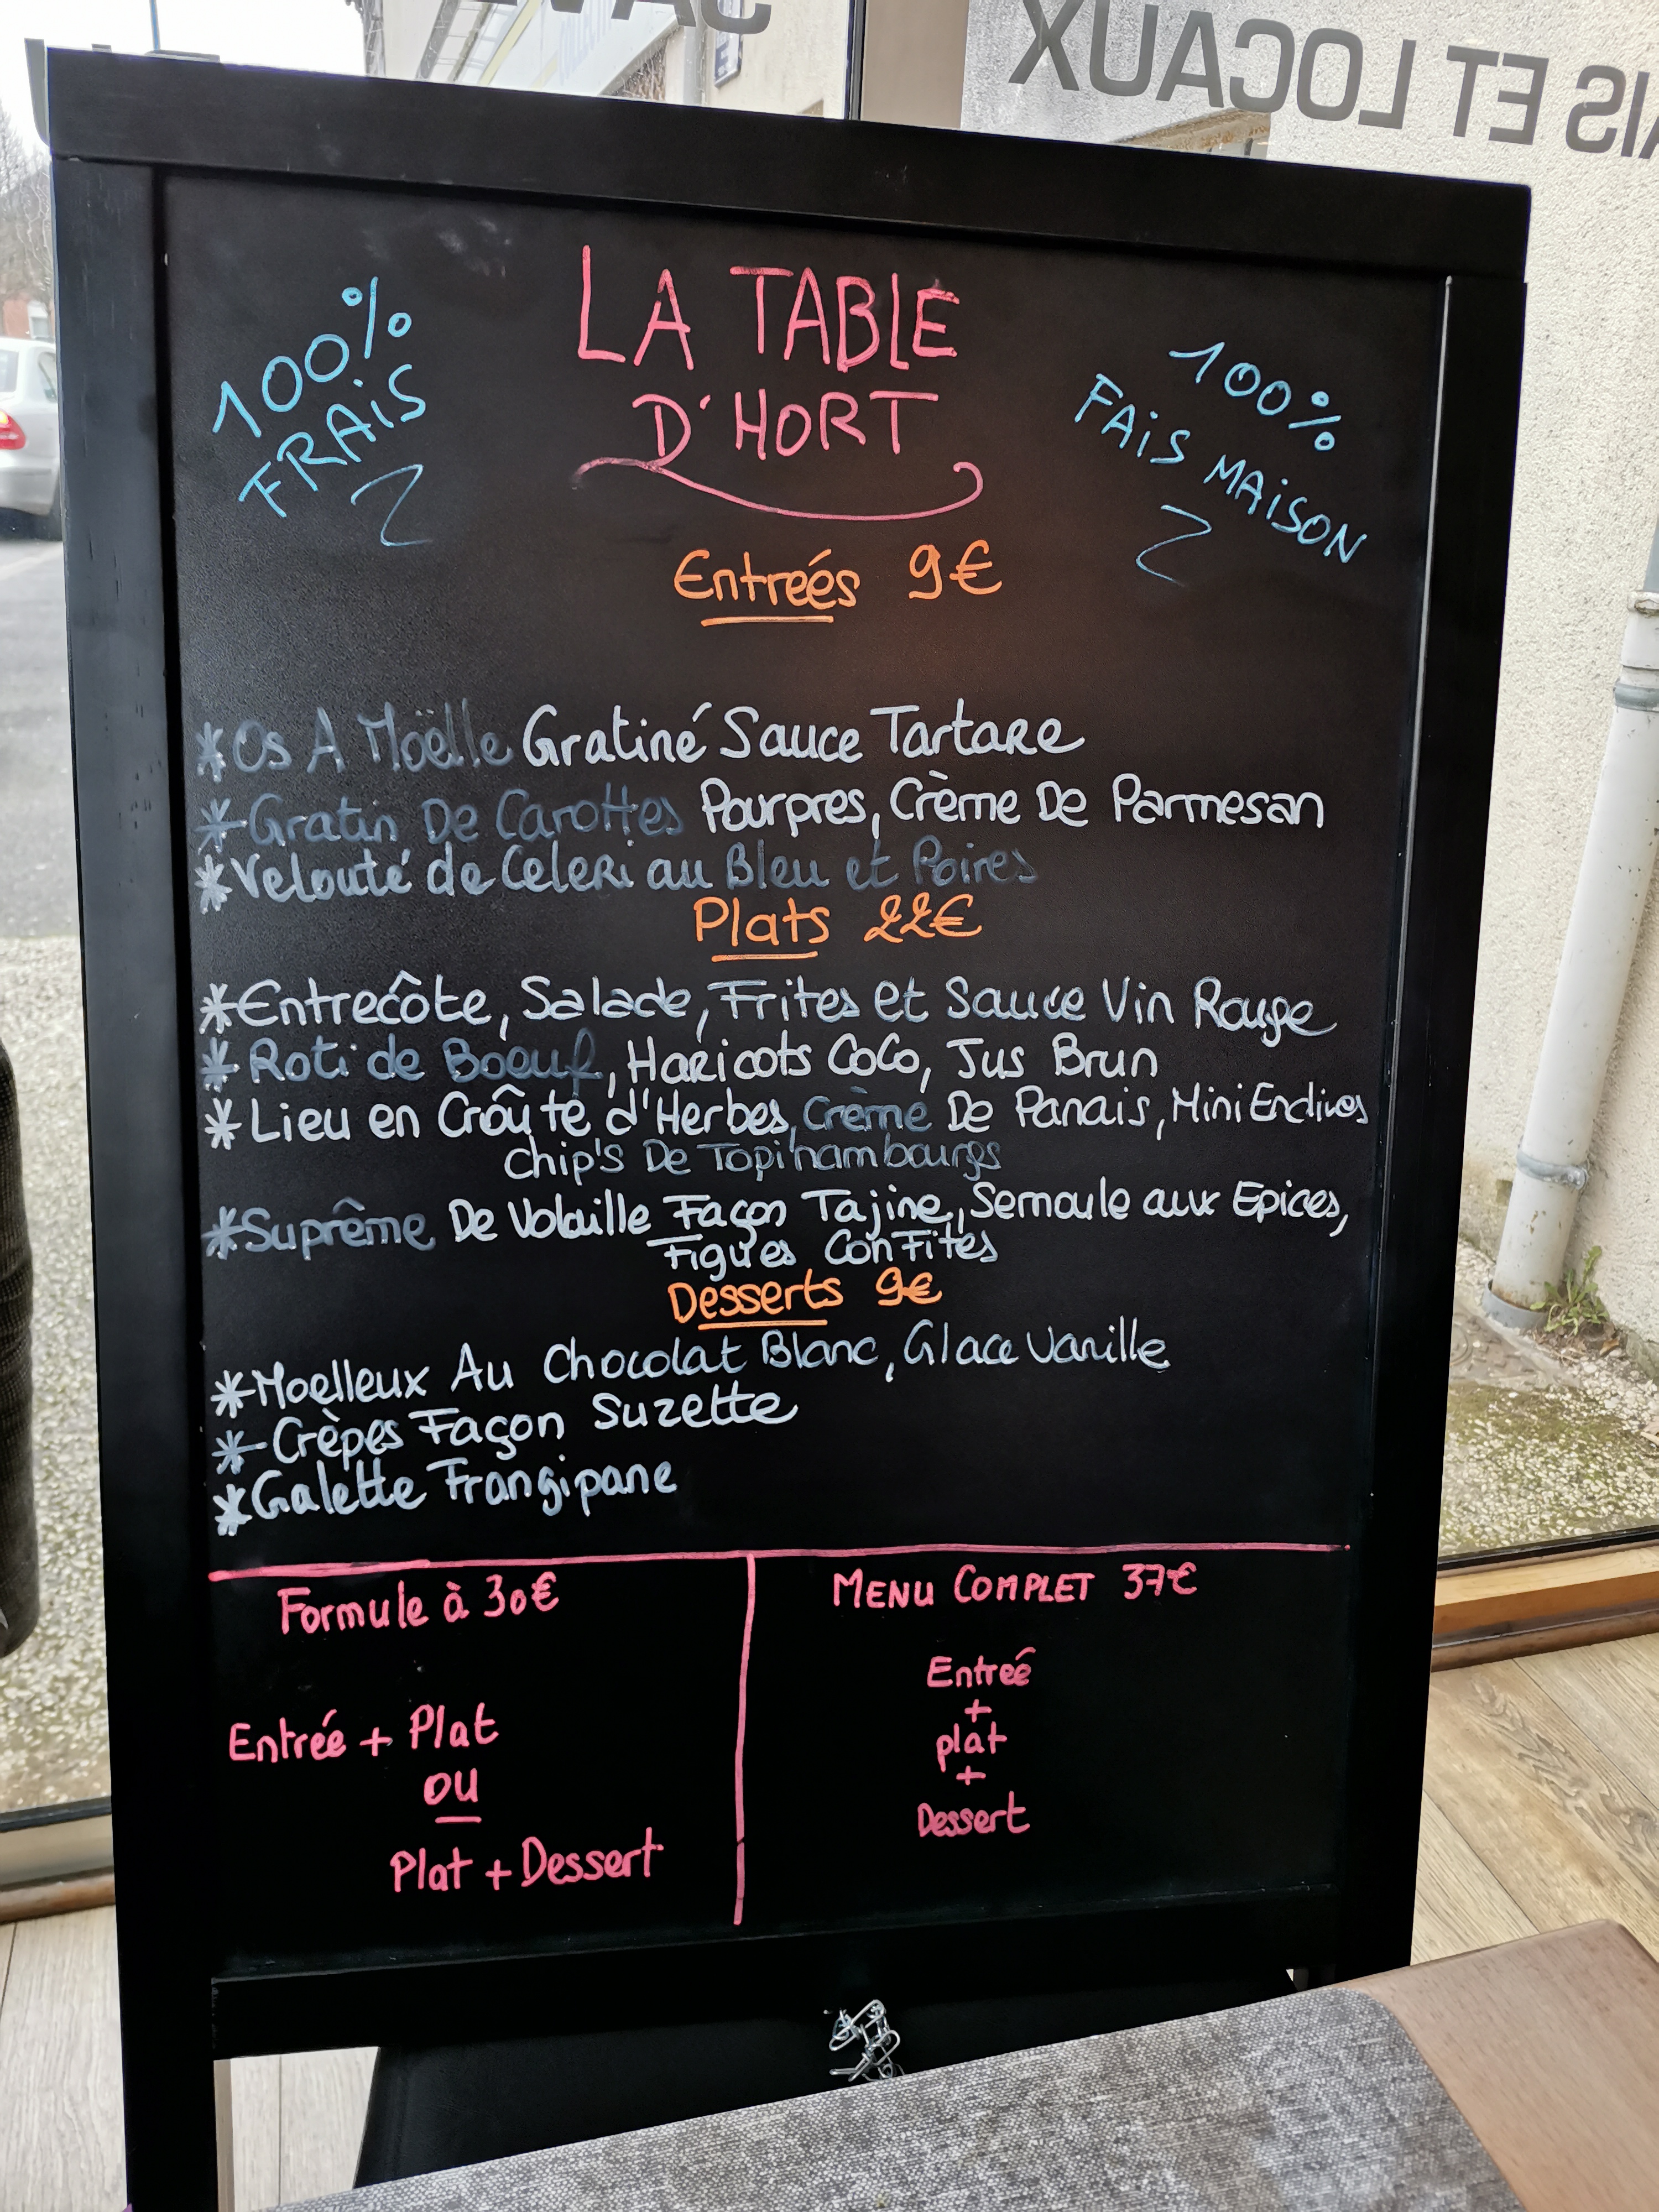 IS ET LOCAUX
100%
FRAiS
LA TABLE
D'HORT
100%
FAiS MAiSON
Entreés 9€
*Os A Moëlle Gratiné Sauce Tartare
*Gratin De Carottes Pourpres, Crème De Parmesan
*Velouté de Celeri au Bleu et Poires
Plats 22€
*Entrecôte, Salade, Frites et Sauce Vin Rouge
*Roti de Boeuf, Haricots CoCo, Jus Brun
*Lieu en Croûte d'Herbes, Crème De Panais, Mini Endives
Chip's De Topinambourgs
*Suprême De Volaille Façon Tajine, Semoule aux Epices,
Figues Confites
Desserts 9€
*Moelleux Au Chocolat Blanc, Glace Vanille
*Crèpes Façon Suzette
*Galette Frangipane
Formule à 30€
Entrée + Plat
OU
Plat + Dessert
MENU COMPLET 37€
Entreé
+
plat
+
Dessert